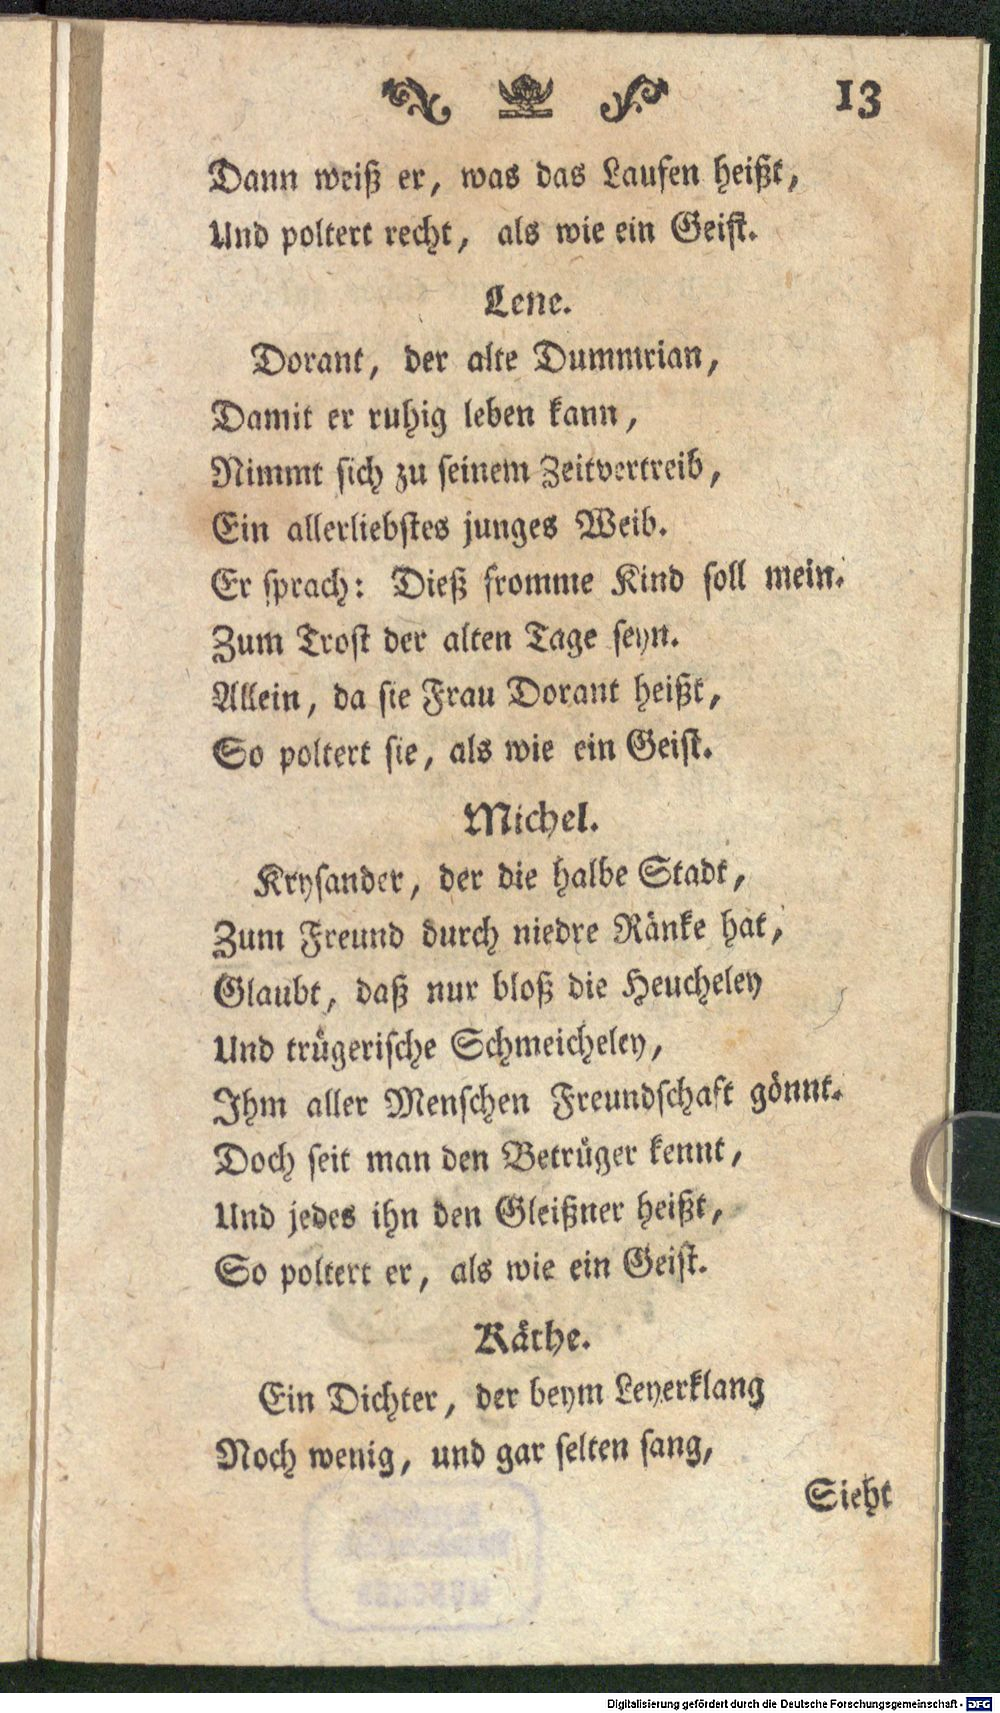 13
Dann weiß er, was das Laufen heißt,
Und poltert recht, als wie ein Geist.
Lene.
Dorant, der alte Dummrian,
Damit er ruhig leben kann,
Nimmt sich zu seinem Zeitvertreib,
Ein allerliebstes junges Weib.
Er sprach: Dieß fromme Kind soll mein.
Zum Trost der alten Tage seyn.
Allein, da sie Frau Dorant heißt,
So poltert sie, als wie ein Geist.
Michel.
Krysander, der die halbe Stadt,
Zum Freund durch niedre Ränke hat,
Glaubt, daß nur bloß die Heucheley
Und trügerische Schmeicheley,
Ihm aller Menschen Freundschaft gönnt.
Doch seit man den Betrüger kennt,
Und jedes ihn den Gleißner heißt,
So poltert er, als wie ein Geist.
Käthe.
Ein Dichter, der beym Leyerklang
Noch wenig, und gar selten sang,
Sieht
Digitalisierung gefördert durch die Deutsche Forschungsgemeinschaft - DFG